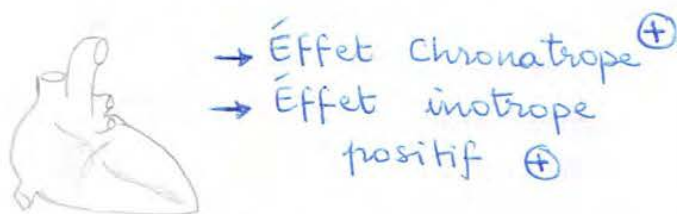 → Éffet Chronatrope ⊕
→ Éffet inotrope
positif ⊕